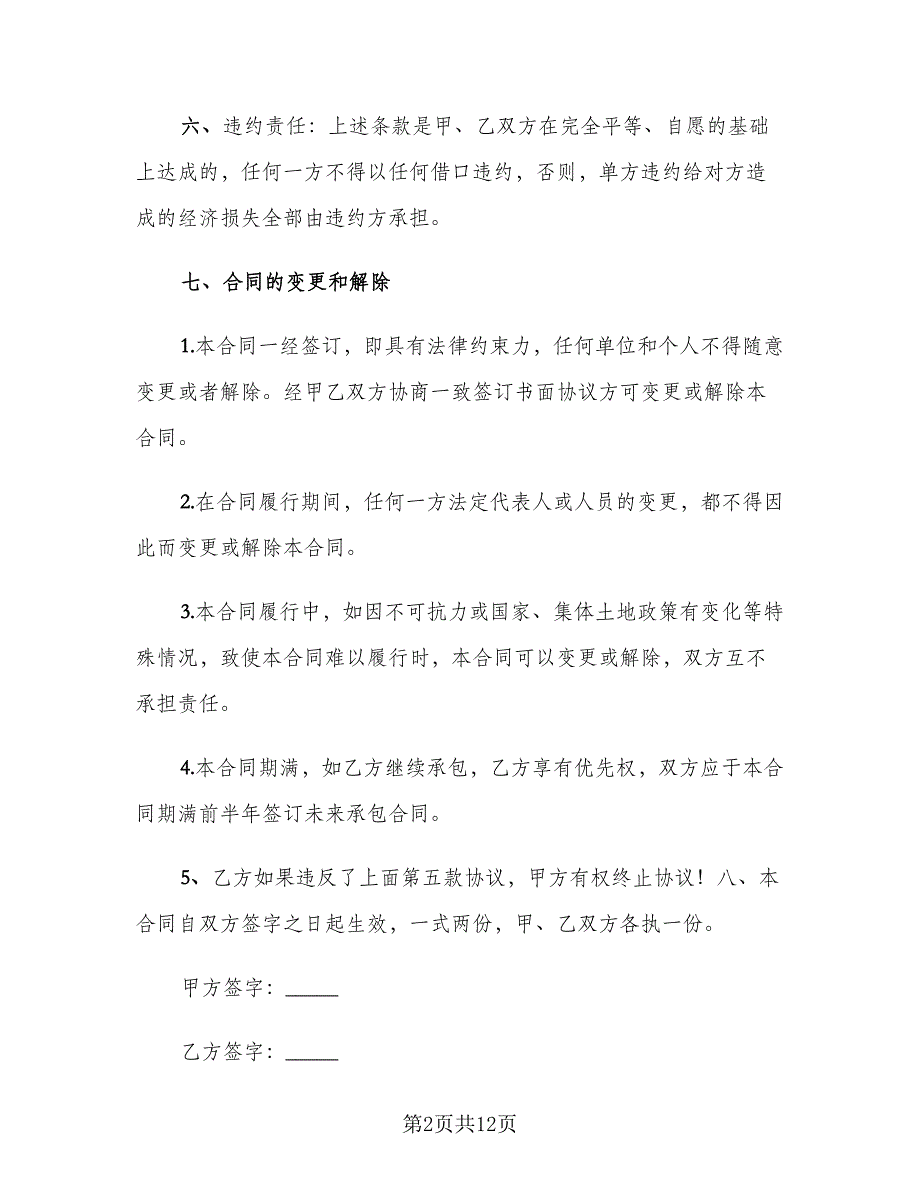 六、违约责任：上述条款是甲、乙双方在完全平等、自愿的基础
上达成的，任何一方不得以任何借口违约，否则，单方违约给对方造
成的经济损失全部由违约方承担。
七、合同的变更和解除
1.本合同一经签订，即具有法律约束力，任何单位和个人不得随意
变更或者解除。经甲乙双方协商一致签订书面协议方可变更或解除本
合同。
2.在合同履行期间，任何一方法定代表人或人员的变更，都不得因
此而变更或解除本合同。
3.本合同履行中，如因不可抗力或国家、集体土地政策有变化等特
殊情况，致使本合同难以履行时，本合同可以变更或解除，双方互不
承担责任。
4.本合同期满，如乙方继续承包，乙方享有优先权，双方应于本合
同期满前半年签订未来承包合同。
5、乙方如果违反了上面第五款协议，甲方有权终止协议！八、本
合同自双方签字之日起生效，一式两份，甲、乙双方各执一份。
甲方签字：_____
乙方签字：_____
第2页共12页